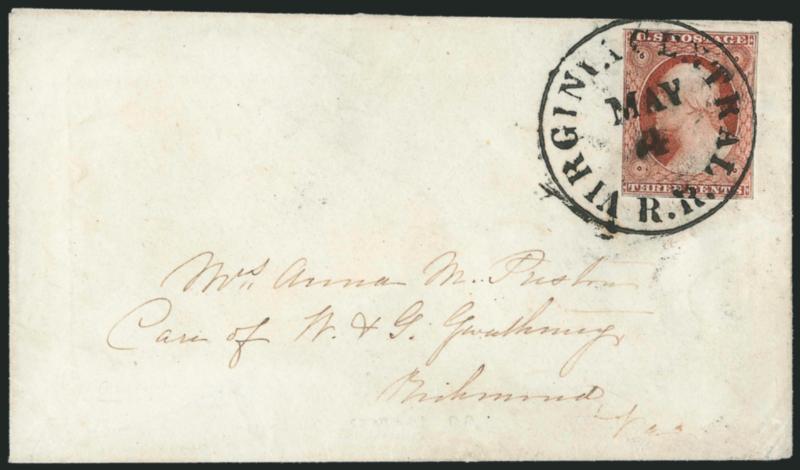 U.S. POSTAGE
THREE CENTS
VIRGINIA CENTRAL R.R.
MAY
4
Mrs. Anna M. Preston
Care of W. & G. Gwathmey
Richmond
Va